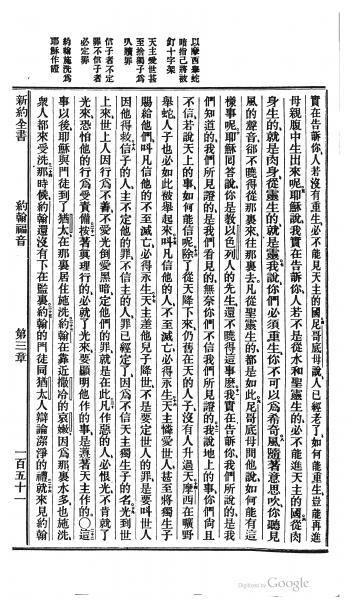 以摩西舉蛇
喻指己將被
釘十字架
天主愛世甚
至捨獨子為
人贖罪
信子者不定
罪不信子者
必定罪
約翰施洗為
耶穌作證
實在告訴你人若沒有重生必不能見天主的國尼哥底母說人已經老了如何能重生豈能再進
母親腹中生出來呢耶穌說我實在告訴你人若不是從水和聖靈生的必不能進天主的國從肉
身生的就是肉身從靈生的就是靈我說你們必須重生你不可以為希奇風隨著意思吹你聽見
風的聲音卻不曉得從那裏來往那裏去凡從聖靈生的都是如此尼哥底母問他說如何能有這
樣事呢耶穌回答說你是教以色列人的先生還不曉得這事麼我實在告訴你我們所說的是我
們知道的我們所見證的是我們看見的無奈你們不信我們所見證的我說地上的事你們尚且
不信若說天上的事如何能信呢除了從天降下來仍舊在天的人子沒有人升過天摩西在曠野
舉蛇人子也必如此被舉起來叫凡信他的人不至滅亡必得永生天主憐愛世人甚至將獨生子
賜給他們叫凡信他的不至滅亡必得永生天主差他兒子降世不是要定世人的罪是要叫世人
因他得救信子的人主不定他的罪不信主的人罪已經定了因為不信天主獨生子的名光到世
上來世上人因行為不善不愛光倒愛黑暗定他們的罪就是在此凡作惡的人必恨光不肯就了
光來恐怕他的行為受責備按著真理行的必就了光來要顯明他作的事是遵著天主作的○這
事以後耶穌與門徒到了猶太在那裏居住施洗約翰在靠近撒冷的哀嫩因為那裏水多也施洗
眾人都來受洗那時候約翰還沒有下在監裏約翰的門徒同猶太人辯論潔淨的禮就來見約翰
新約全書 約翰福音 第三章 一百五十一
Digitized by Google